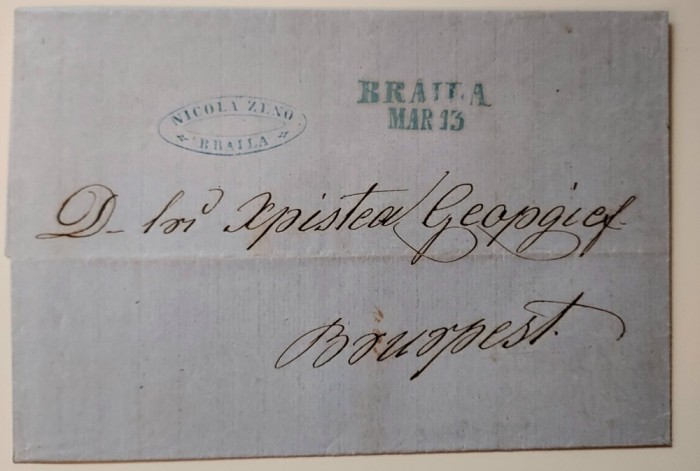 NICOLA ZENO
BRAILA
BRAILA
MAR 13
D-lꙋĭ Xpistea Geopgief
Bꙋkꙋpest.